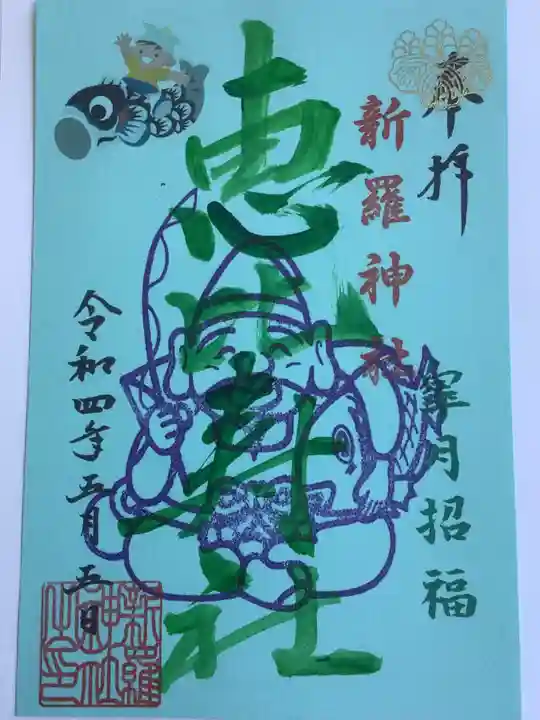 奉拝
新羅神社
皐月招福
恵比寿社
令和四年五月五日
新羅神社之印